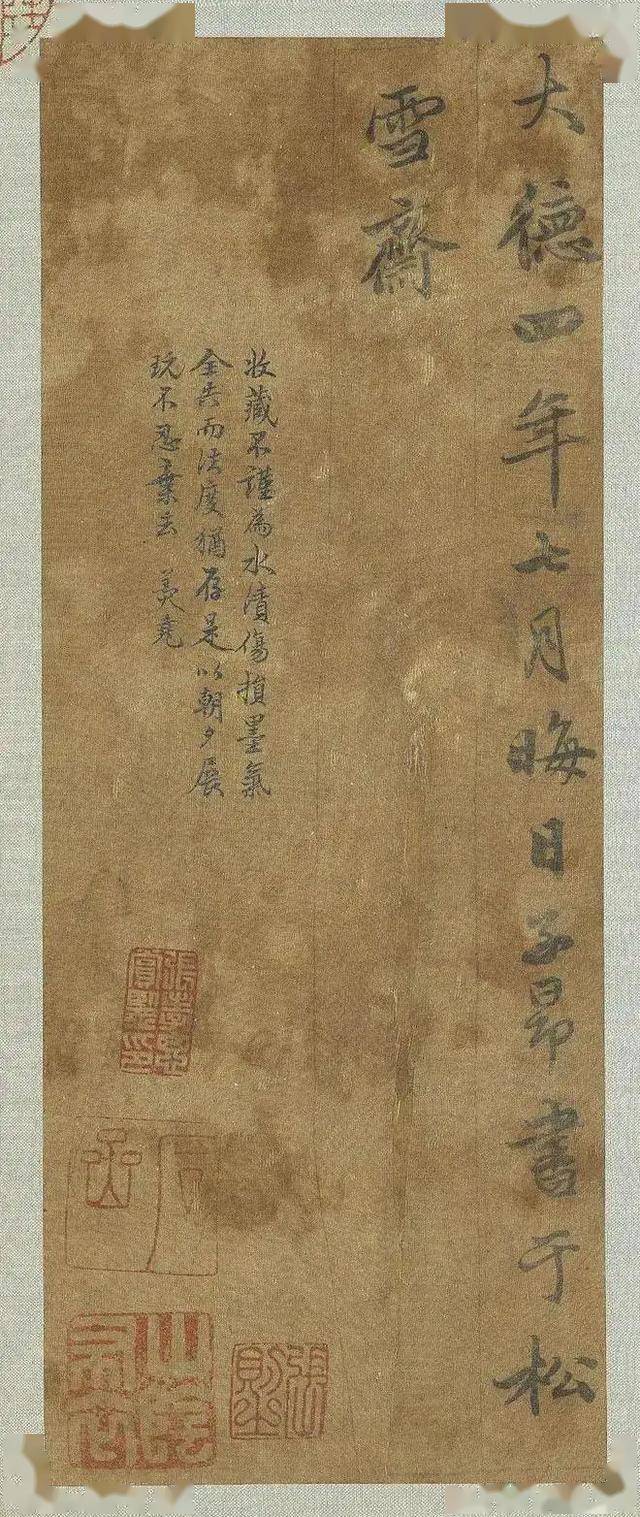 大德四年七月晦日子昂書于松
雪齋
收藏不謹為水漬傷損墨氣
全失而法度猶存是以朝夕展
玩不忍棄去 美堯